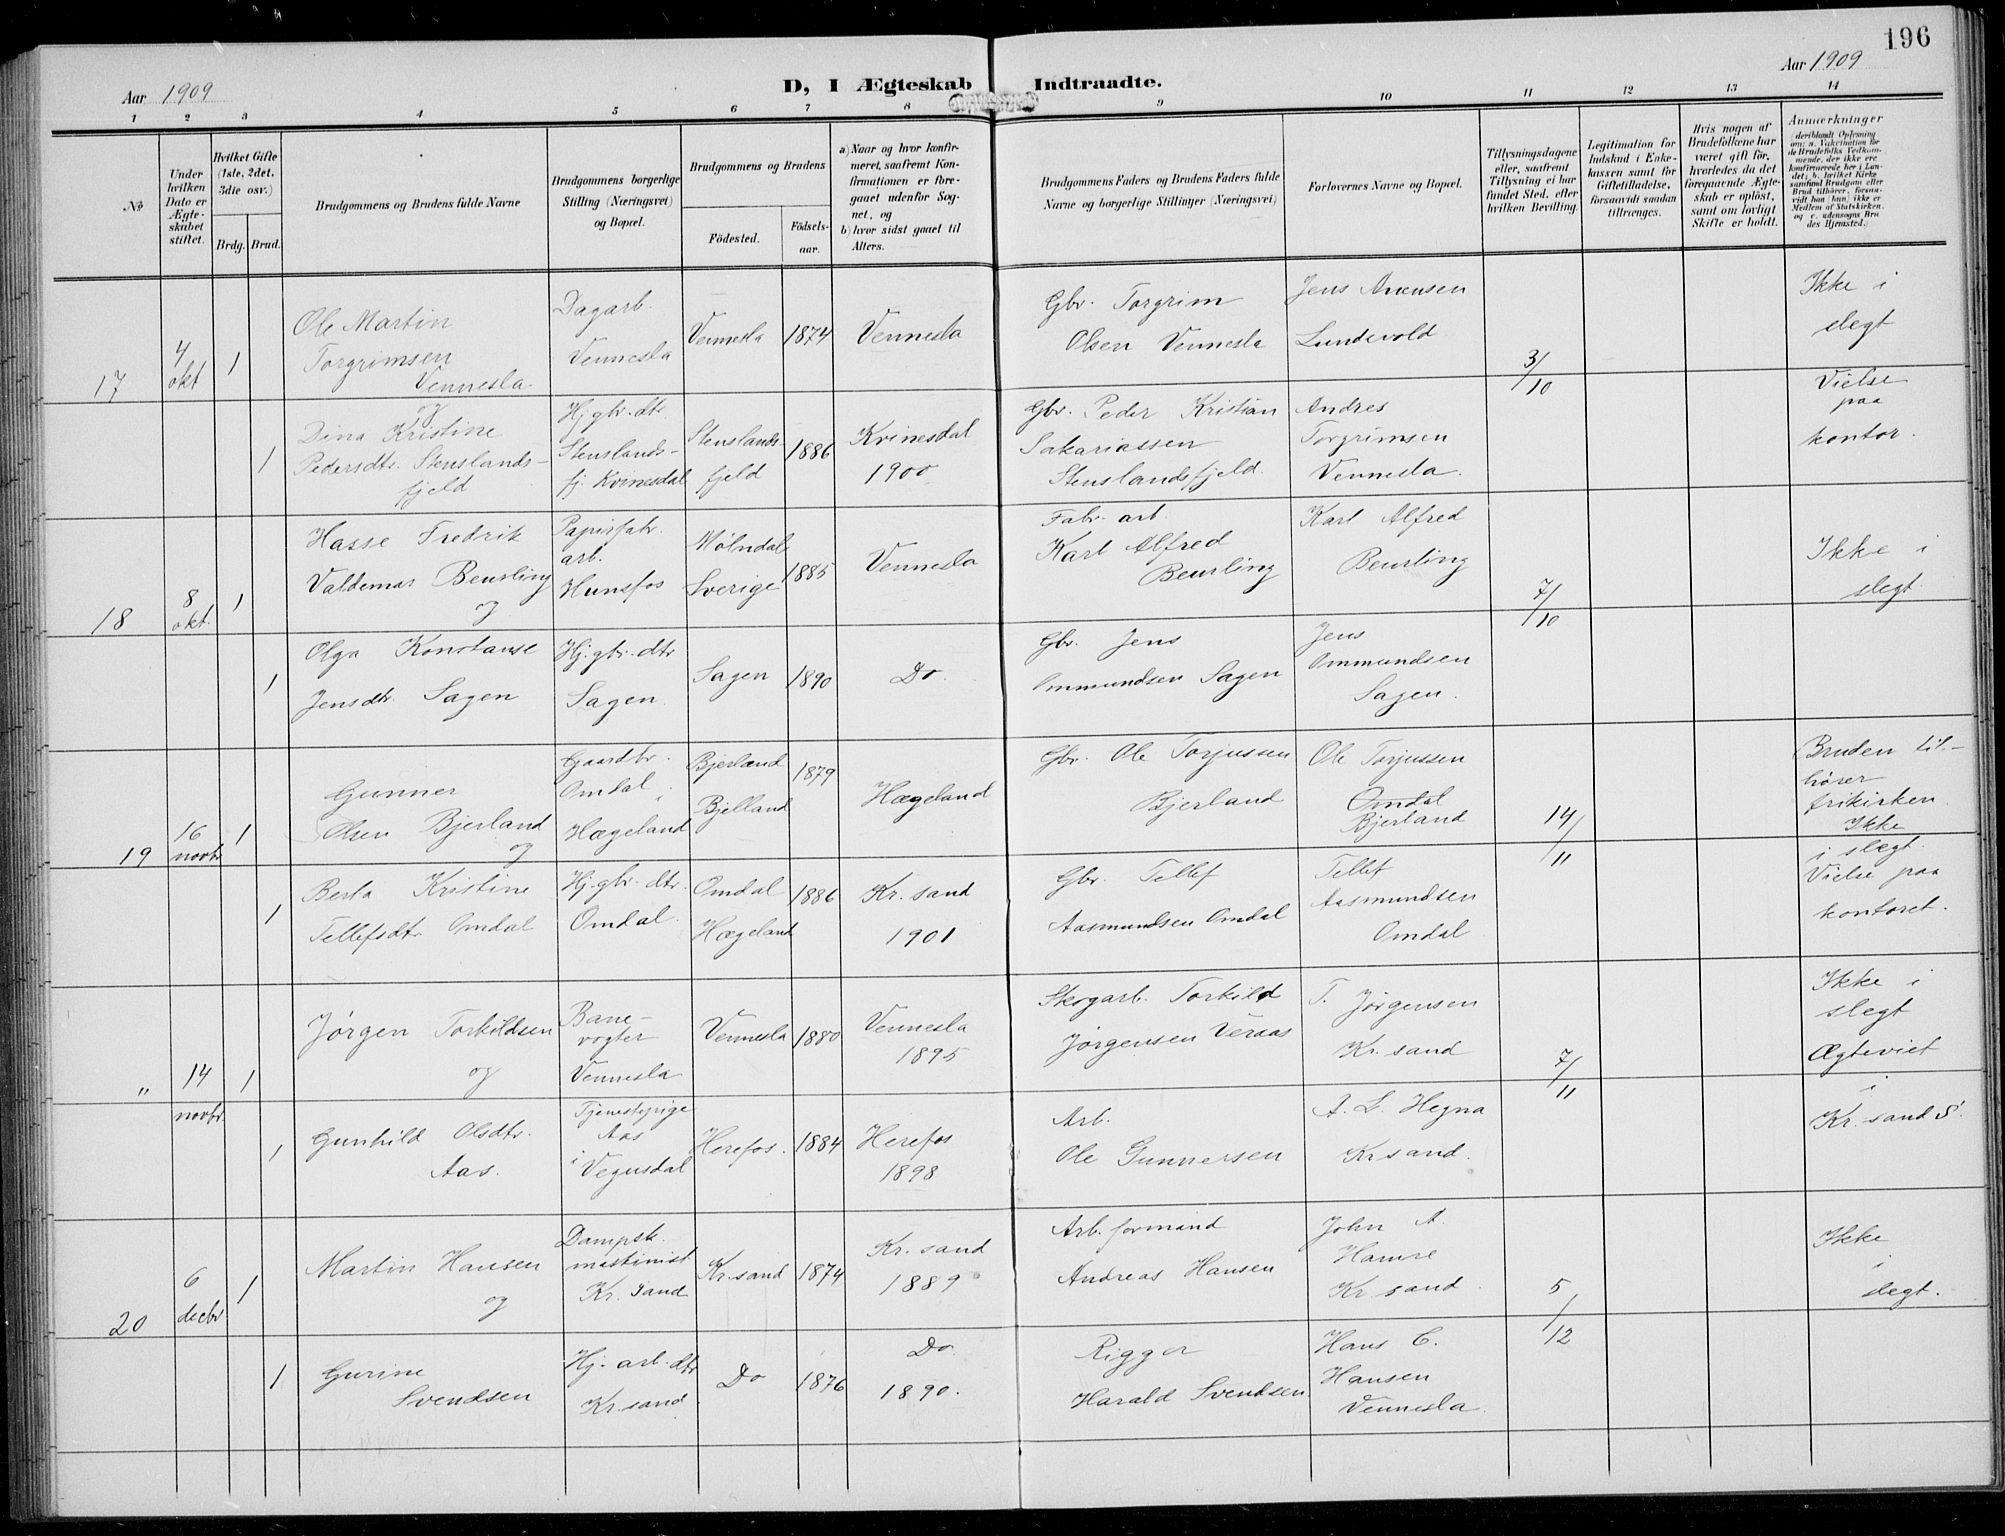 196
Aar 1909
D, I Ægteskab Indtraadte.
Aar 1909
1 2 3 4 5 6 7 8 9 10 11 12 13 14
№
Under hvilken Dato er Ægteskabet stiftet.
Hvilket Gifte (1ste, 2det, 3die osv.)
Brdg. Brud.
Brudgommens og Brudens fulde Navne
Brudgommens borgerlige Stilling (Næringsvei) og Bopæl.
Brudgommens og Brudens
Fødested.
Fødselsaar.
a) Naar og hvor konfirmeret, saafremt Konfirmationen er foregaaet udenfor Sognet, og
b) hvor sidst gaaet til Alters.
Brudgommens Faders og Brudens Faders fulde Navne og borgerlige Stillinger (Næringsvei)
Forlovernes Navne og Bopæl.
Tillysningsdagene eller, saafremt Tillysning ei har fundet Sted, efter hvilken Bevilling.
Legitimation for Indskud i Enkekassen samt for Giftetilladelse, forsaavidt saadan tiltrænges.
Hvis nogen af Brudefolkene har været gift før, hvorledes da det foregaaende Ægteskab er opløst, samt om lovligt Skifte er holdt.
Anmærkninger
(deriblandt Oplysning om: a. Vakcination for de Brudefolks Vedkommende, der ikke ere konfirmerede her i Landet; b. hvilket Kirkesamfund Brudgom eller Brud tilhører, forsaavidt han (hun) ikke er Medlem af Statskirken, og c. udensogns Brudes Hjemsted.)
17
4 okt
1
Ole Martin
Torgrimsen
Vennesla
og
Dagarb.
Vennesla
Vennesla
1874
Vennesla
Gbr. Torgrim
Olsen Vennesla
Jens Arensen
Lundevold
3/10
Ikke i
slegt
Vielse
paa
kontor.
1
Dina Kristine
Pedersdtr. Stenslands-
fjeld
Hj. gbr. dtr.
Stenslands-
fj. Kvinesdal
Stenslands-
fjeld
1886
Kvinesdal
1900
Gbr. Peder Kristian
Sakariassen
Stenslandsfjeld.
Andres
Torgrimsen
Vennesla.
18
8 okt.
1
Hasse Fredrik
Valdemar Beurling
og
Papirfabr.
arb.
Hunsfos
Mølndal
Sverige
1885
Vennesla
Fabr. arb.
Karl Alfred
Beurling
Karl Alfred
Beurling
7/10
Ikke i
slegt.
1
Olga Konstanse
Jensdtr. Sagen
Hj. gbr. dtr
Sagen.
Sagen
1890
Do.
Gbr. Jens
Ommundsen Sagen
Jens
Ommundsen
Sagen.
19
16 novbr
1
Gunner
Olsen Bjerland
og
Gaardbr.
Omdal i
Hægeland
Bjerland
Bjelland
1879
Hægeland
Gbr. Ole Torjussen
Bjerland
Ole Torjussen
Omdal
Bjerland
14/11
Bruden til-
hører
frikirken.
Ikke
i slegt.
Vielse paa
kontoret.
1
Berta Kristine
Tellefsdtr Omdal
Hj. gbr. dtr.
Omdal.
Omdal
Hægeland
1886
Kr. sand
1901
Gbr. Tellef
Aasmundsen Omdal
Tellef
Aasmundsen
Omdal
"
14 novbr.
1
Jørgen Torkildsen
og
Bane-
vogter
Vennesla
Vennesla
1880
Vennesla
1895
Skogarb. Torkild
Jørgensen Veraas
T. Jørgensen
Kr. sand
7/11
Ikke i
slegt
Ægteviet
i
Kr. sand S.
1
Gunhild Olsdtr.
Aas.
Tjenestepige
Aas
i Vegusdal
Herefos.
1884
Herefos
1898
Arb.
Ole Gunnersen
A. L. Hegna
Kr sand.
20
6 decbr
1
Martin Hansen
og
Dampsk.
maskinist
Kr. sand
Kr. sand
1874
Kr. sand
1889
Arb. formand
Andreas Hansen
John A.
Hamre
Kr. sand
5/12
Ikke
i
slegt.
1
Gurine
Svendsen
Hj. arb. dtr
Kr. sand
Do
1876
Do.
1890.
Rigger
Harald Svendsen
Hans C.
Hansen
Vennesla.